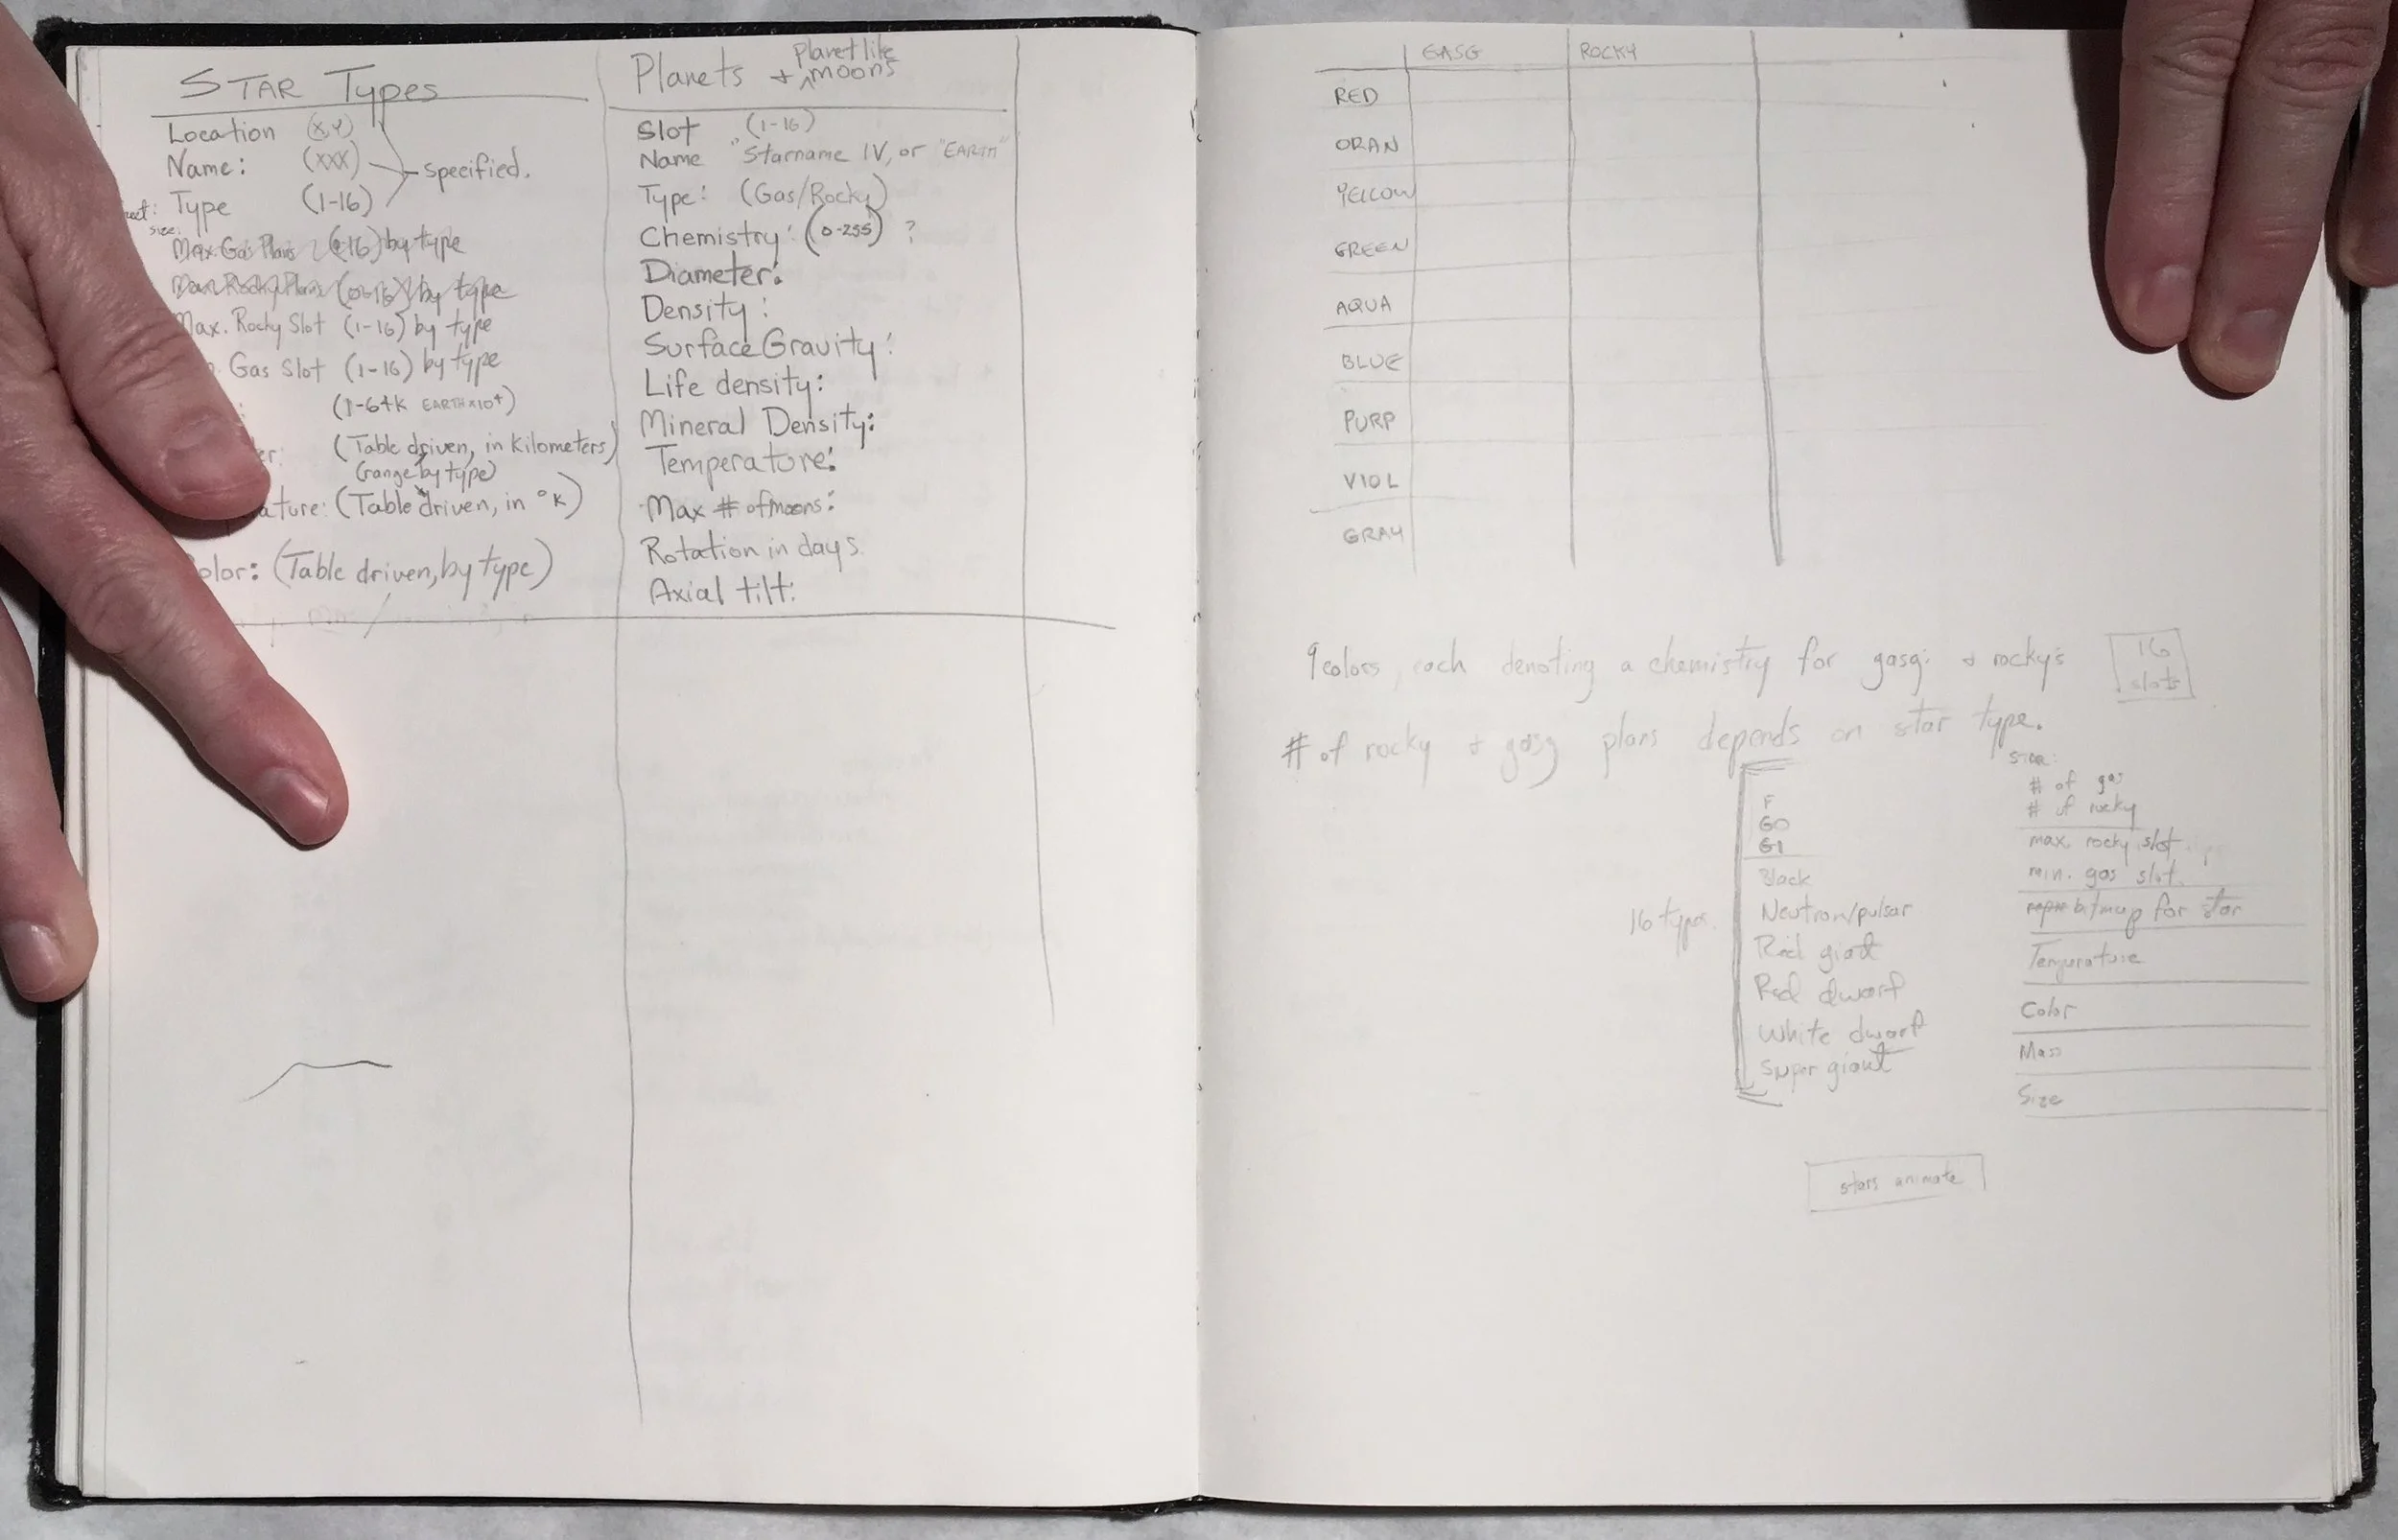 STAR Types
Location (X,Y)
Name: (XXX)
specified.
Type (1-16)
size:
Max. Gas Plans (0-16) by type
Max. Rocky Plans (0-16) by type
Max. Rocky Slot (1-16) by type
Gas Slot (1-16) by type
(1-64K EARTH×10⁴)
er: (Table driven, in kilometers)
(range by type)
ature: (Table driven, in °K)
olor: (Table driven, by type)
Planets + planetlike moons
Slot (1-16)
Name "Starname IV, or "EARTH"
Type: (Gas/Rocky)
Chemistry: (0-255) ?
Diameter:
Density:
Surface Gravity:
Life density:
Mineral Density:
Temperature:
Max # of moons:
Rotation in days.
Axial tilt:
GASG ROCKY
RED
ORAN
YELLOW
GREEN
AQUA
BLUE
PURP
VIOL
GRAY
9 colors, each denoting a chemistry for gasg. + rocky's
16 slots
# of rocky + gasg plans depends on star type.
16 types.
F
G0
G1
Black
Neutron/pulsar
Red giant
Red dwarf
White dwarf
Super giant
STAR:
# of gas
# of rocky
max. rocky slot
min. gas slot.
bitmap for star
Temperature
Color
Mass
Size
stars animate